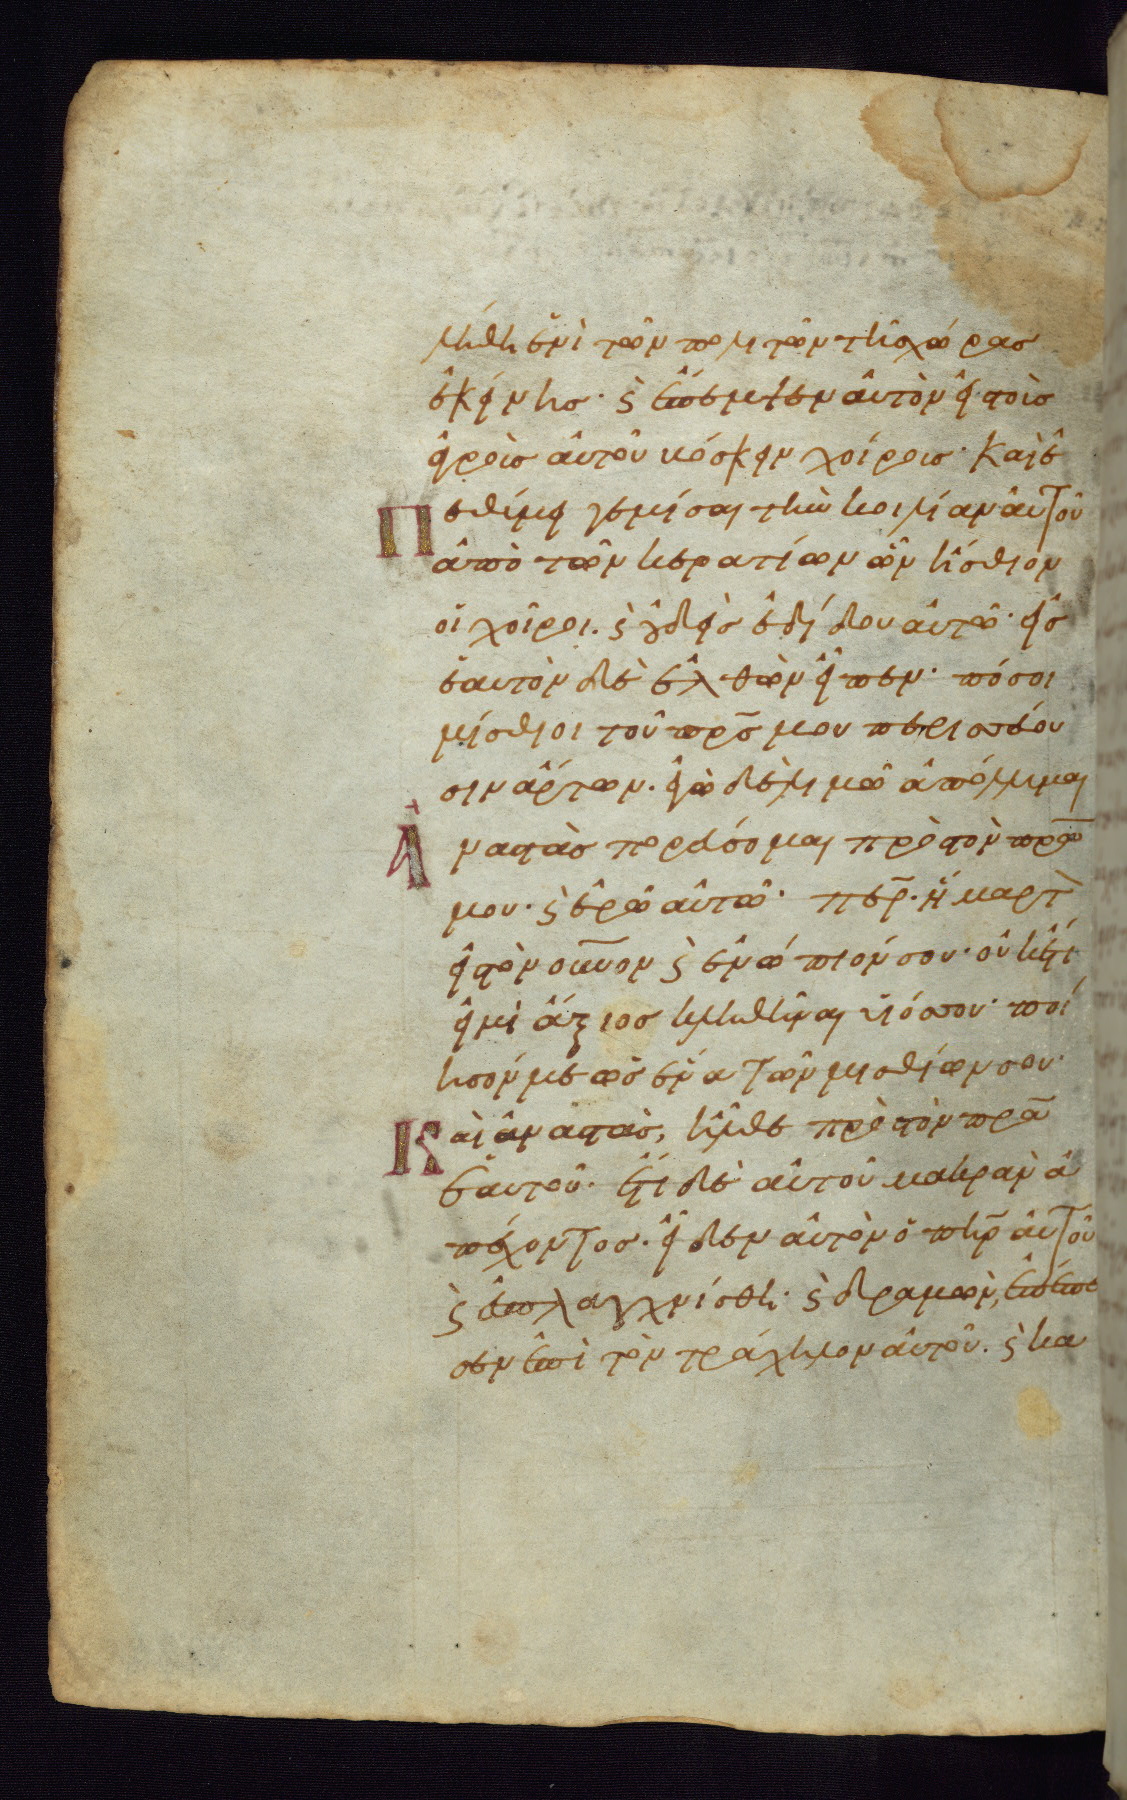 λήθη ἑνὶ τῶν πολιτῶν τῆς χώρας
ἐκείνης· ϛ ἔπεμψεν αὐτὸν εἰς τοὺς
ἀγροὺς αὐτοῦ βόσκειν χοίρους· Καὶ ἐ
Πεθύμει γεμίσαι τὴν κοιλίαν αὐτοῦ
ἀπὸ τῶν κερατίων ὧν ἤσθιον
οἱ χοῖροι. ϛ οὐδεὶς ἐδίδου αὐτῶ· εἰς
ἑαυτὸν δὲ ἐλθὼν εἶπεν· πόσοι
μίσθιοι τοῦ πρς μου περισσεύου
σιν ἄρτων. ἐγὼ δὲ λιμῶ ἀπόλλυμαι
Ἀναστὰς πορεύσομαι πρὸς τὸν πρα
μου· ϛ ἐρῶ αὐτῶ· περ· ἥμαρτον
εἰς τὸν ουνον ϛ ἐνώπιόν σου· οὐκέτι
εἰμὶ ἄξιος κληθῆναι υἱός σου· ποί
ησόν με ὡς ἕνα τῶν μισθίων σου·
Καὶ ἀναστὰς, ἦλθε πρὸς τὸν πρα
ἑαυτοῦ· ἔτι δὲ αὐτοῦ μακρὰν ἀ
πέχοντος· εἶδεν αὐτὸν ὁ πηρ αὐτοῦ
ϛ ἐσπλαγχνίσθη· ϛ δραμὼν, ἐπέπε
σεν ἐπὶ τὸν τράχηλον αὐτοῦ. ϛ κα